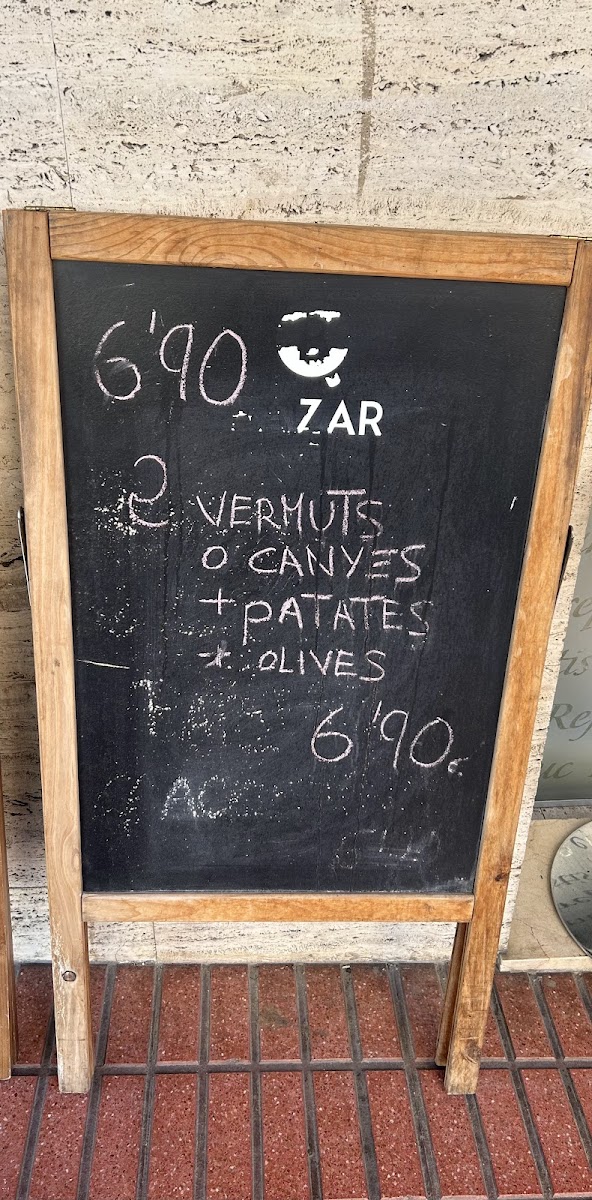 6'90
ZAR
2 VERMUTS
O CANYES
+ PATATES
+ OLIVES
6'90€